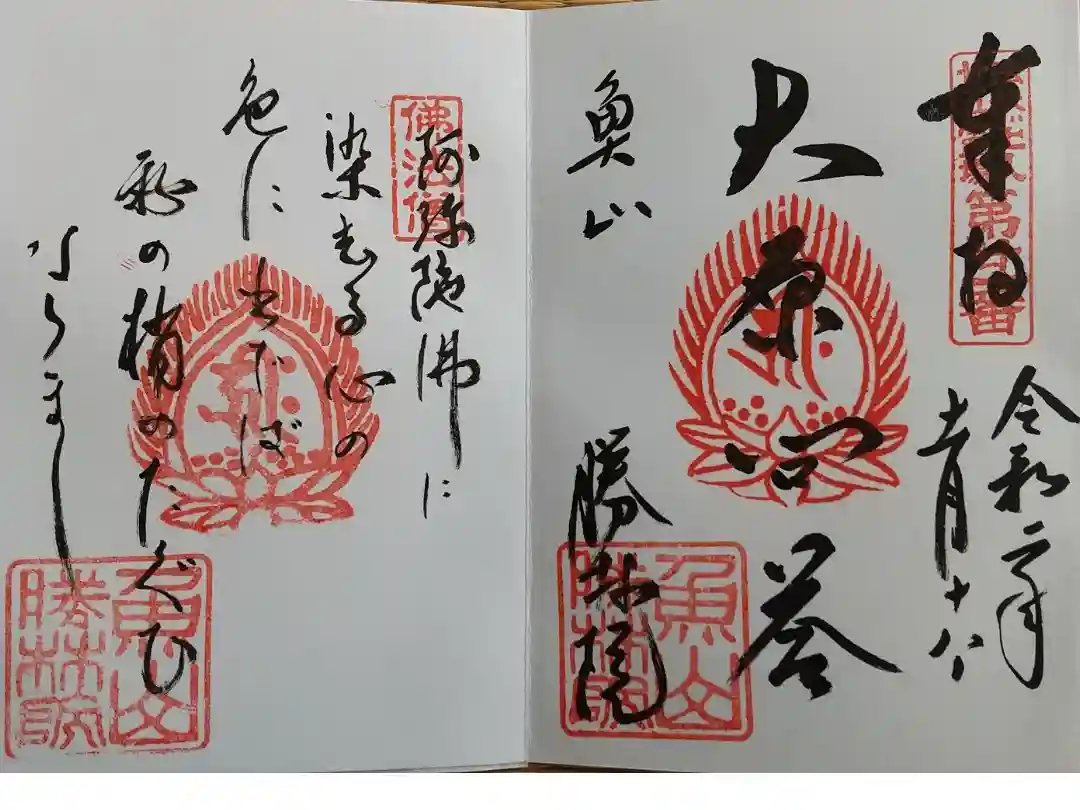 奉拝
令和二年
十一月十八
大原問答
魚山
勝林院
魚山
勝林院
佛法僧
阿弥陀佛に
染むる心の
色に出でば
秋の梢のたぐひ
ならまし
魚山
勝林院